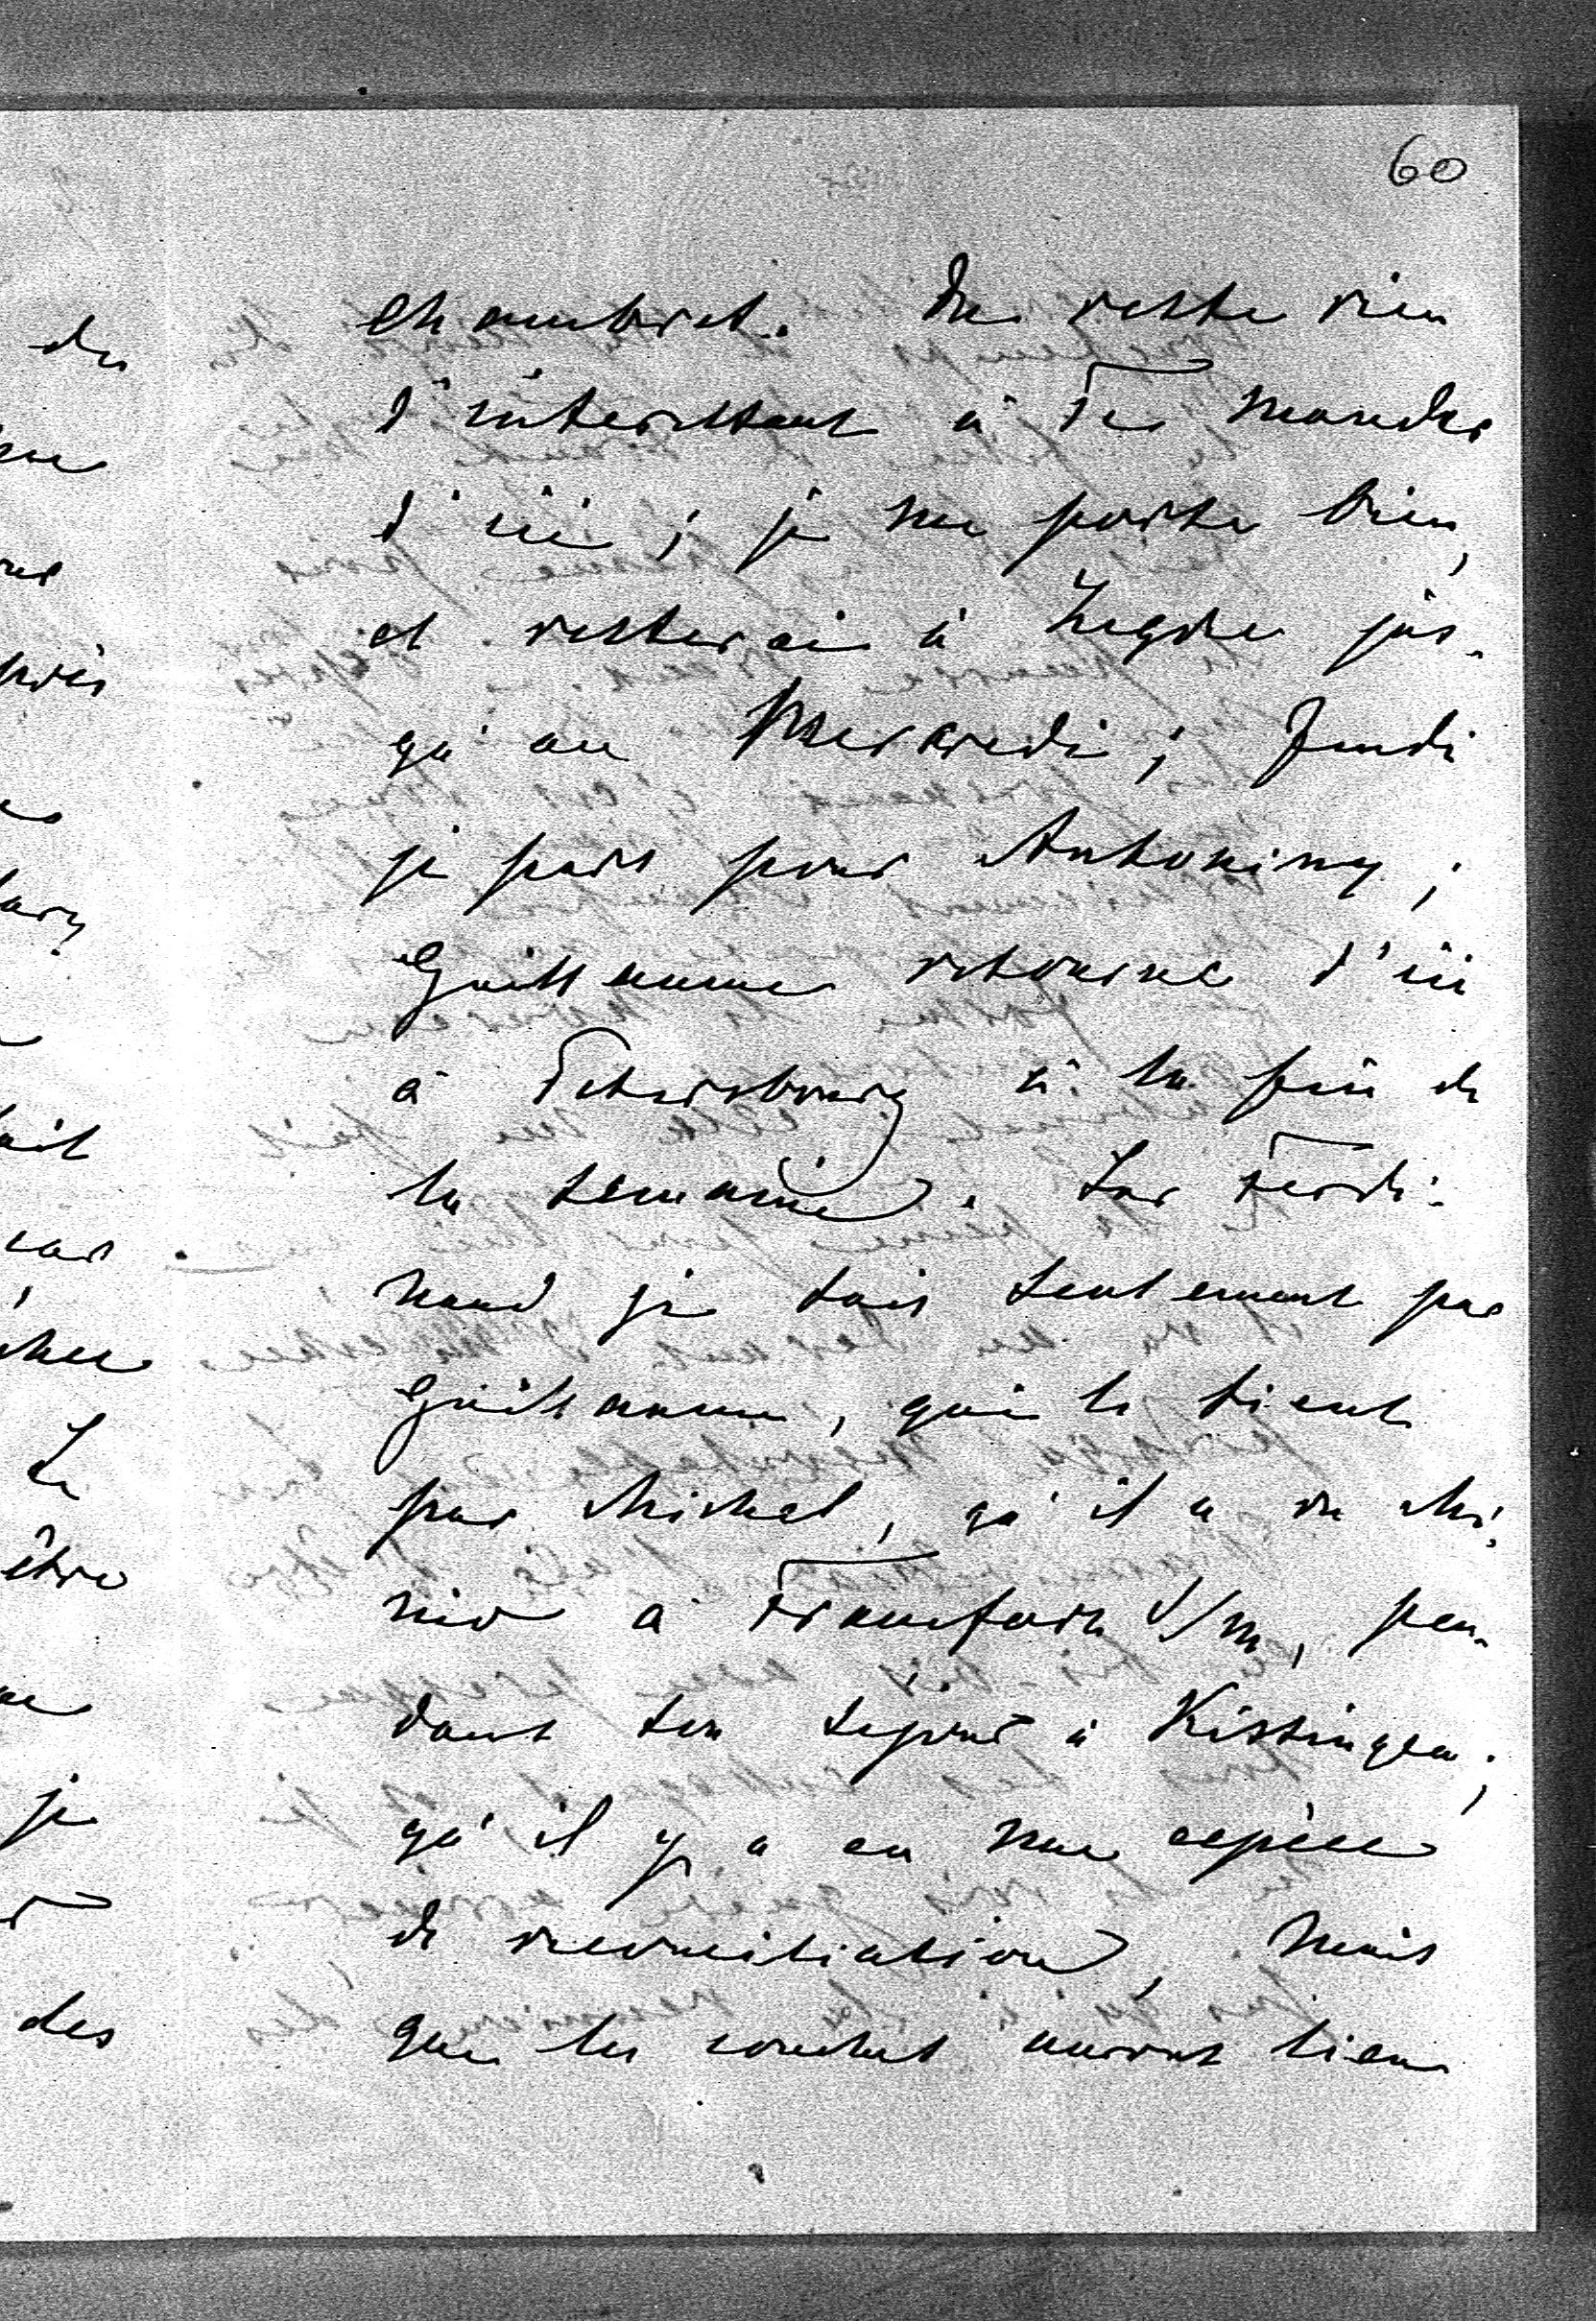 60
chambres. Du reste rien
d'interessant à Te mander
d'ici; je me porte bien,
et resterai à Zegrze jus-
qu'au Mercredi; Jeudi
je pars pour Antoniny;
Guillaume retourne d'ici
à Petersbourg à la fin de
la semaine. Sur Ferdi-
nand je sais seulement par
Guillaume, qui le tient
par Michel, qu'il a vu Mi-
nio à Francfort s/m, pen-
dant son sejour à Kissingen;
qu'il y a eu une espèce
de reconciliation, mais
que les couches auront lieu
du
près
Le
être
je
des